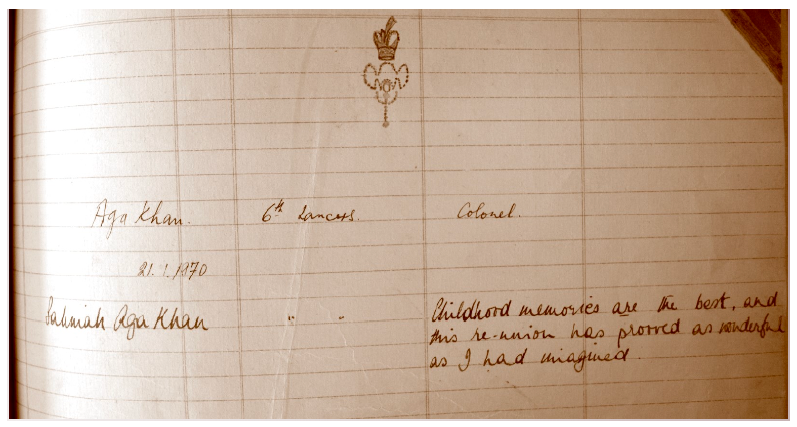 Aga Khan. 6th Lancers. Colonel.
21.1.1970
Salimah Aga Khan " " Childhood memories are the best, and
this re-union has prooved as wonderful
as I had imagined.